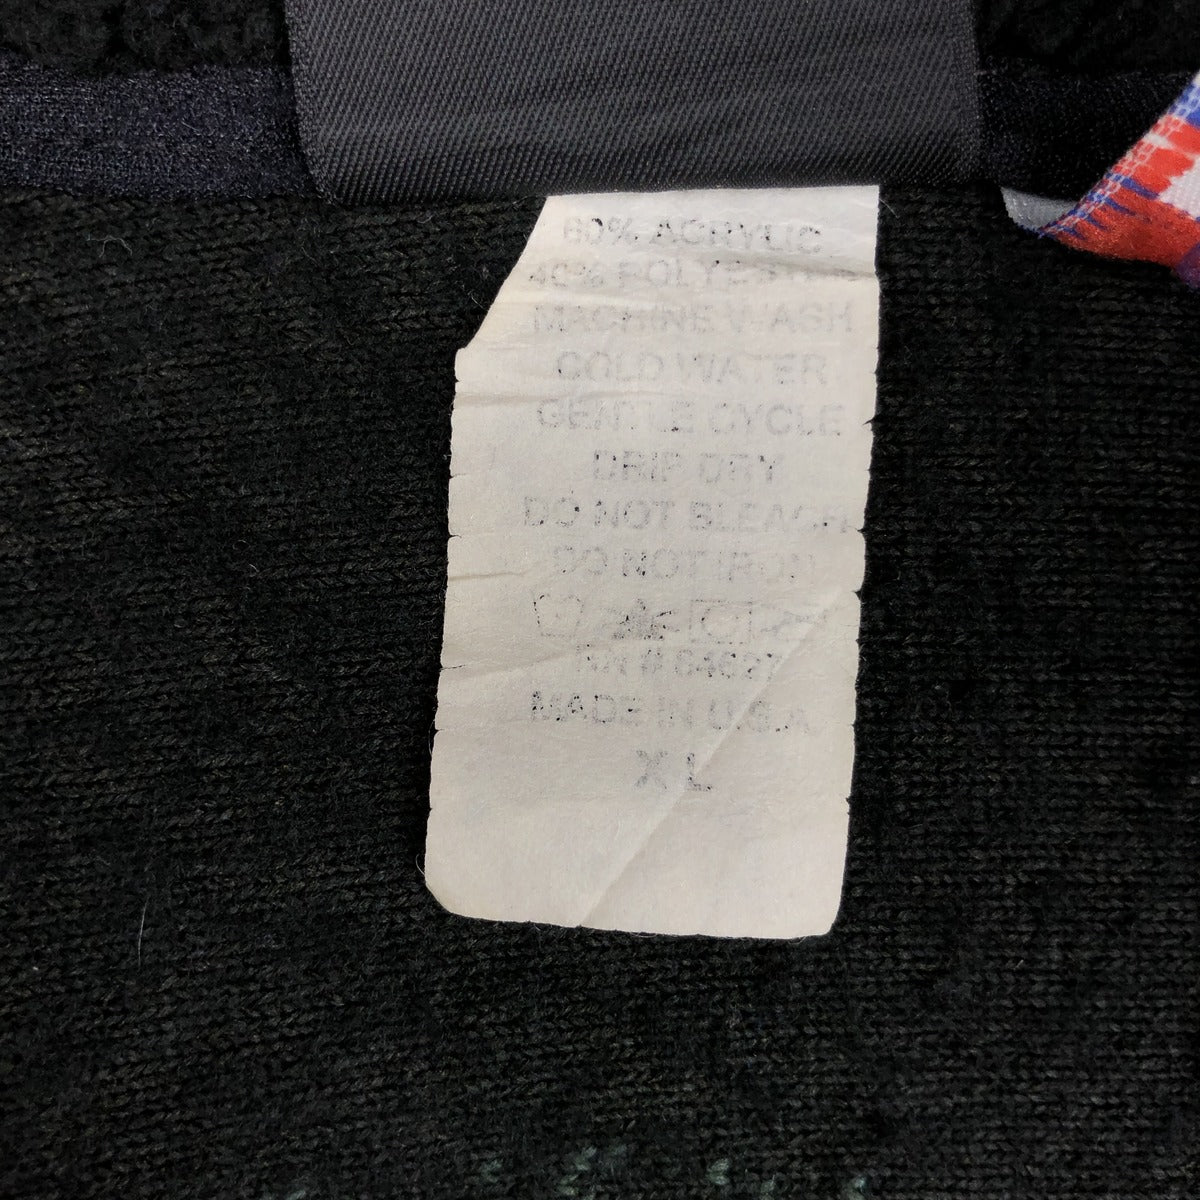 60% ACRYLIC
40% POLYESTER
MACHINE WASH
COLD WATER
GENTLE CYCLE
DRIP DRY
DO NOT BLEACH
DO NOT IRON
RN # 64627
MADE IN U.S.A
XL